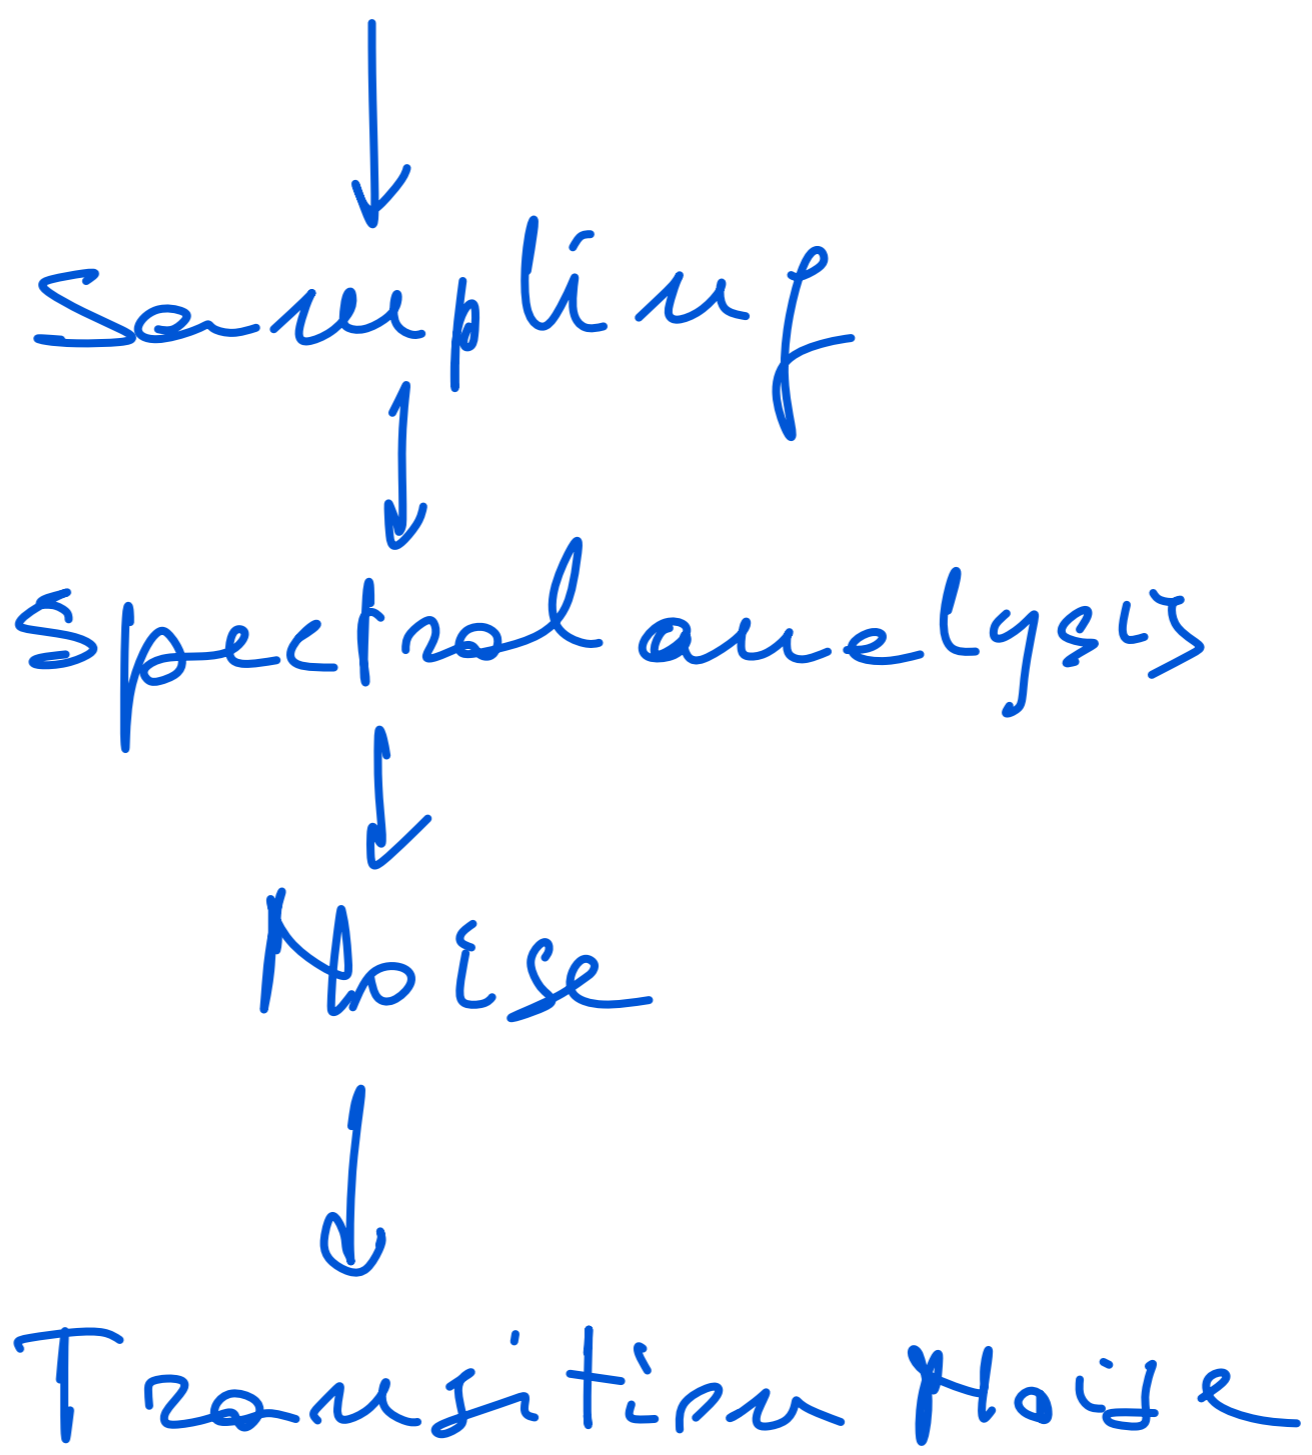 Sampling
Spectral analysis
Noise
Transition Noise